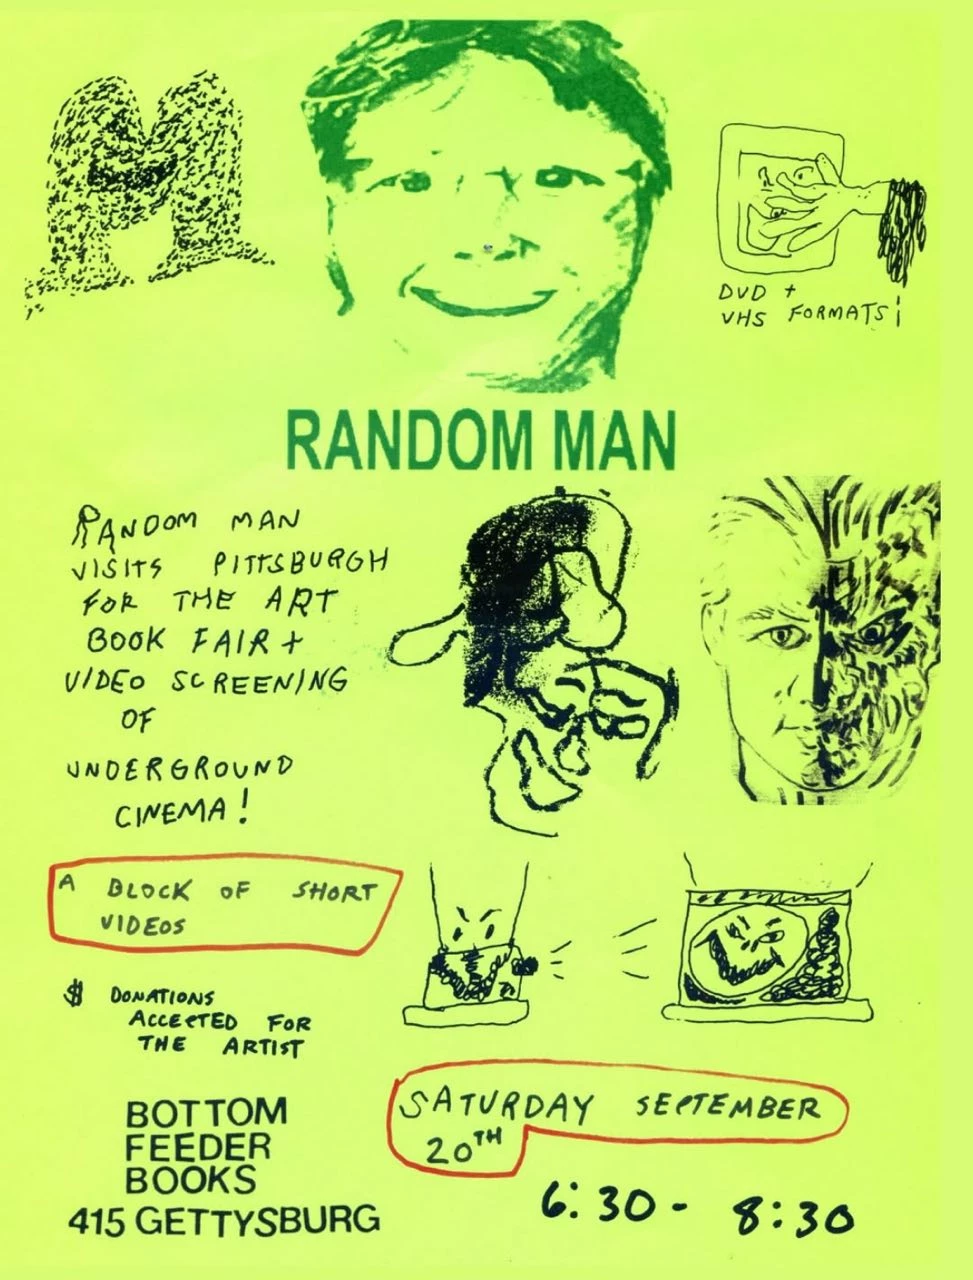 DVD +
VHS FORMATS!
RANDOM MAN
RANDOM MAN
VISITS PITTSBURGH
FOR THE ART
BOOK FAIR +
VIDEO SCREENING
OF
UNDERGROUND
CINEMA!
A BLOCK OF SHORT
VIDEOS
$ DONATIONS
ACCEPTED FOR
THE ARTIST
SATURDAY SEPTEMBER
20TH
6:30 - 8:30
BOTTOM
FEEDER
BOOKS
415 GETTYSBURG